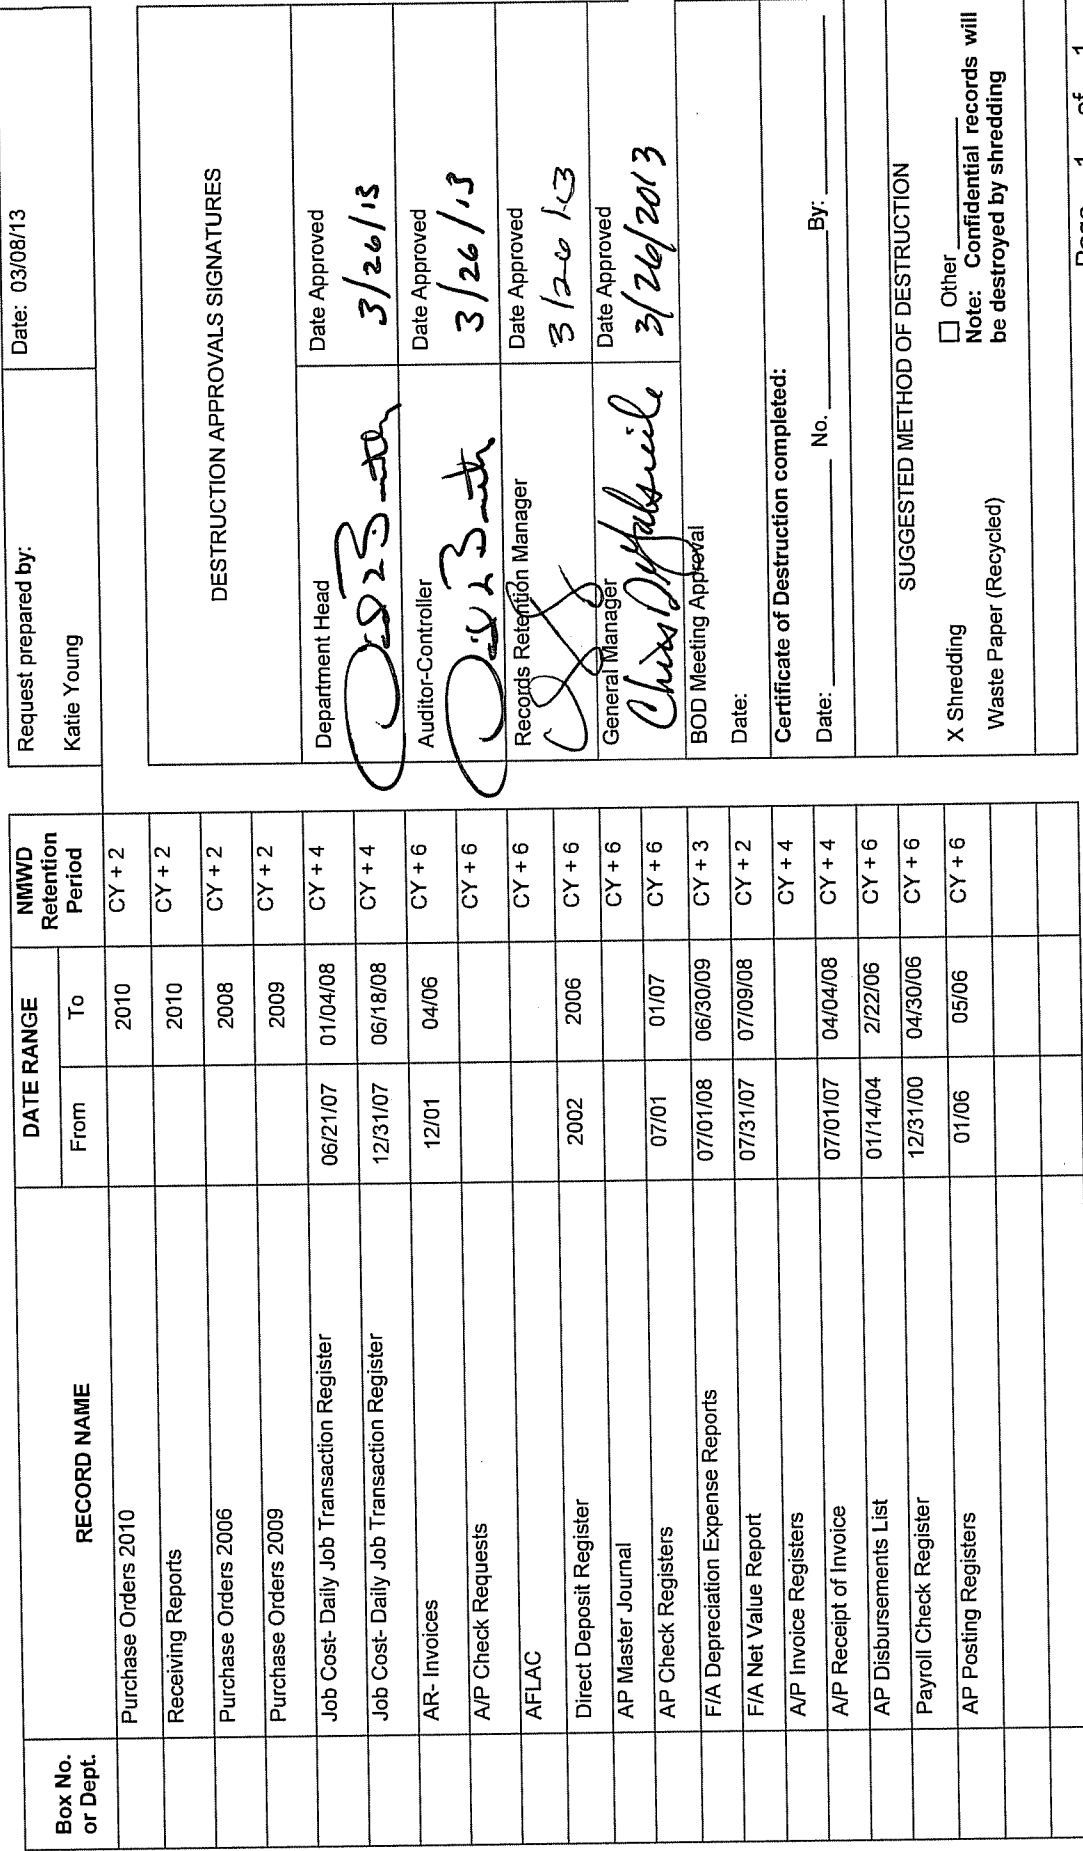 Box No. or Dept. RECORD NAME DATE RANGE From To NMWD Retention Period
Purchase Orders 2010 2010 CY + 2
Receiving Reports 2010 CY + 2
Purchase Orders 2006 2008 CY + 2
Purchase Orders 2009 2009 CY + 2
Job Cost- Daily Job Transaction Register 06/21/07 01/04/08 CY + 4
Job Cost- Daily Job Transaction Register 12/31/07 06/18/08 CY + 4
AR- Invoices 12/01 04/06 CY + 6
A/P Check Requests CY + 6
AFLAC CY + 6
Direct Deposit Register 2002 2006 CY + 6
AP Master Journal CY + 6
AP Check Registers 07/01 01/07 CY + 6
F/A Depreciation Expense Reports 07/01/08 06/30/09 CY + 3
F/A Net Value Report 07/31/07 07/09/08 CY + 2
A/P Invoice Registers CY + 4
A/P Receipt of Invoice 07/01/07 04/04/08 CY + 4
AP Disbursements List 01/14/04 2/22/06 CY + 6
Payroll Check Register 12/31/00 04/30/06 CY + 6
AP Posting Registers 01/06 05/06 CY + 6
Request prepared by: Date: 03/08/13
Katie Young
DESTRUCTION APPROVALS SIGNATURES
Department Head Date Approved
3/26/13
Auditor-Controller Date Approved
3/26/13
Records Retention Manager Date Approved
3/26/13
General Manager Date Approved
3/26/2013
BOD Meeting Approval
Date:
Certificate of Destruction completed:
Date: No. By:
SUGGESTED METHOD OF DESTRUCTION
X Shredding
Waste Paper (Recycled)
☐ Other
Note: Confidential records will
be destroyed by shredding
Page 1 of 1